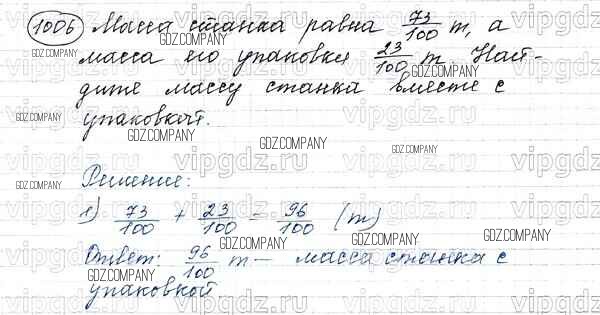 1006 Масса станка равна 73/100 т, а
масса его упаковки 23/100 т. Най-
дите массу станка вместе с
упаковкой.
Решение:
1) 73/100 + 23/100 = 96/100 (т)
Ответ: 96/100 т — масса станка с
упаковкой